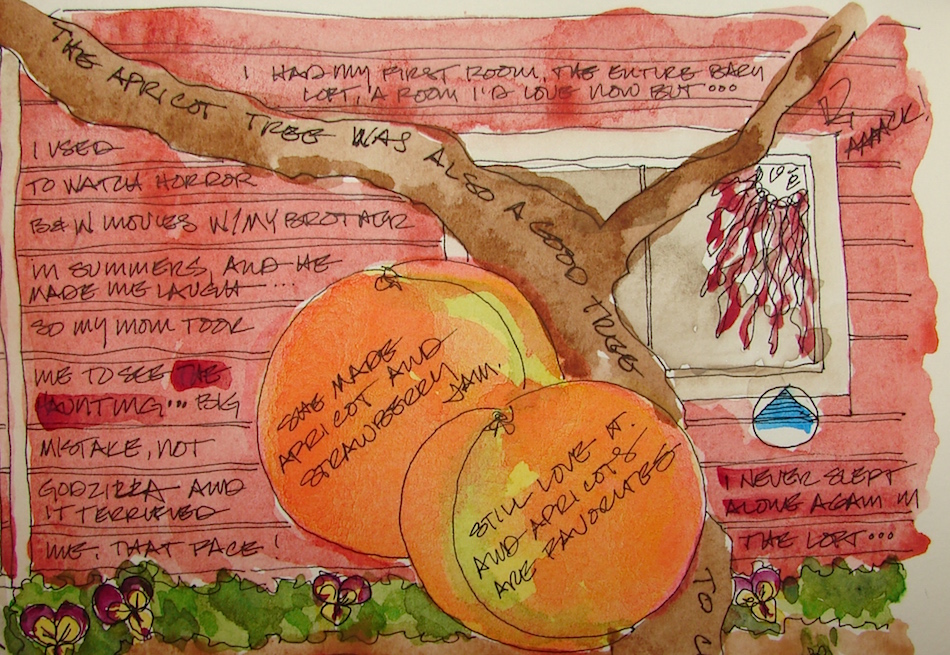 THE APRICOT TREE WAS ALSO A GOOD TREE
TO
I HAD MY FIRST ROOM, THE ENTIRE BARN
LOFT, A ROOM I'D LOVE NOW BUT...
AAAACK!
I USED
TO WATCH HORROR
B&W MOVIES W/MY BROTHER
IN SUMMERS, AND HE
MADE ME LAUGH ...
SO MY MOM TOOK
ME TO SEE THE
HAUNTING... BIG
MISTAKE, NOT
GODZILLA AND
IT TERRIFIED
ME. THAT FACE!
SHE MADE
APRICOT AND
STRAWBERRY JAM.
STILL LOVE IT.
AND APRICOTS
ARE FAVORITES
I NEVER SLEPT
ALONE AGAIN IN
THE LOFT...